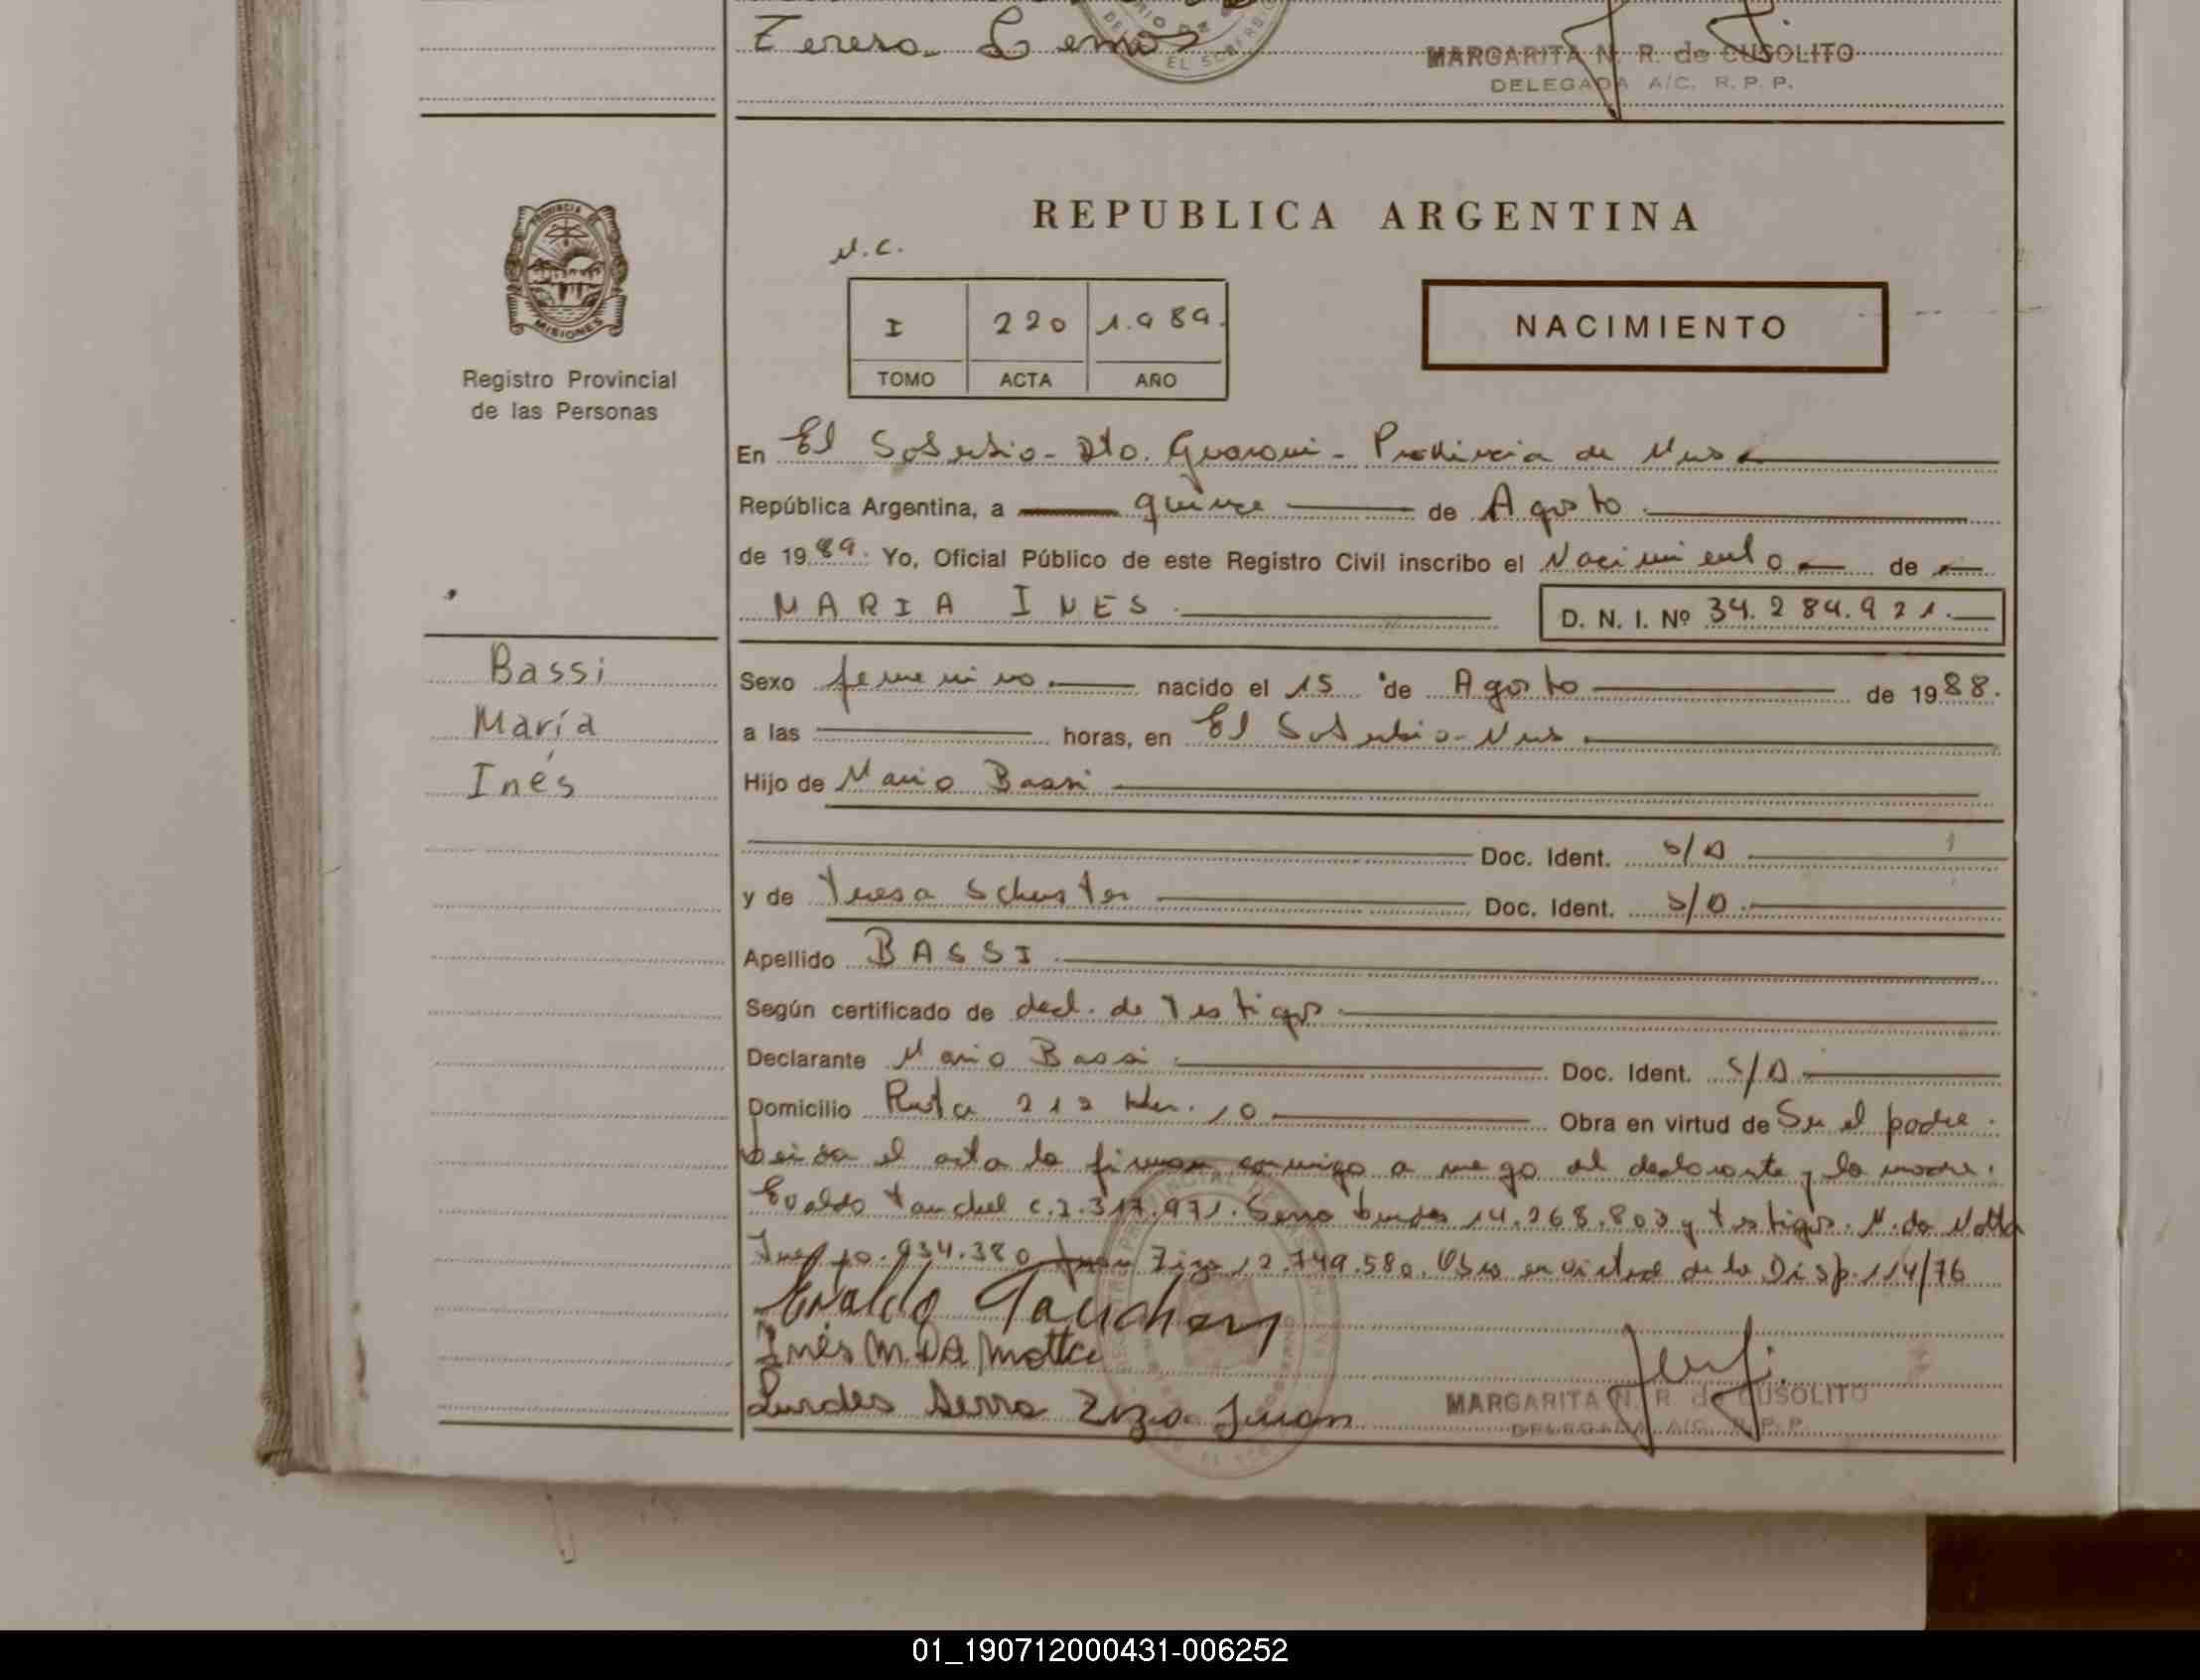 Teresa Lemos
MARGARITA N. R. de CUSOLITO
DELEGADA A/C. R. P. P.
PROVINCIA DE
MISIONES
Registro Provincial
de las Personas
REPUBLICA ARGENTINA
N.C.
I 220 1.989.
TOMO ACTA AÑO
NACIMIENTO
En El Soberbio - Dto. Guarani - Provincia de Mnes
República Argentina, a quince de Agosto
de 1989. Yo, Oficial Público de este Registro Civil inscribo el Nacimiento de
MARIA INES
D. N. I. Nº 34.284.921.
Bassi
María
Inés
Sexo femenino. nacido el 15 de Agosto de 1988.
a las horas, en El Soberbio - Mnes.
Hijo de Mario Bassi
Doc. Ident. S/D
y de Teresa Schuster Doc. Ident. S/D.
Apellido BASSI.
Según certificado de decl. de Testigos
Declarante Mario Bassi. Doc. Ident. S/D
Domicilio Ruta 212 Km. 10 Obra en virtud de Ser el padre.
Leida el acta la firman conmigo a ruego del declarante y la madre.
Evaldo 317.971. Serra Lurdes 14.268.803 y testigos. M. da Motta
Ines 10.934.380 Juan Zizo 12.749.580. Obro en virtud de la Disp. 114/76
Evaldo Tauchen
Inés M. DA Motta
Lurdes Serra Zizo Juan
MARGARITA N. R. de CUSOLITO
DELEGADA A/C. R. P. P.
01_190712000431-006252